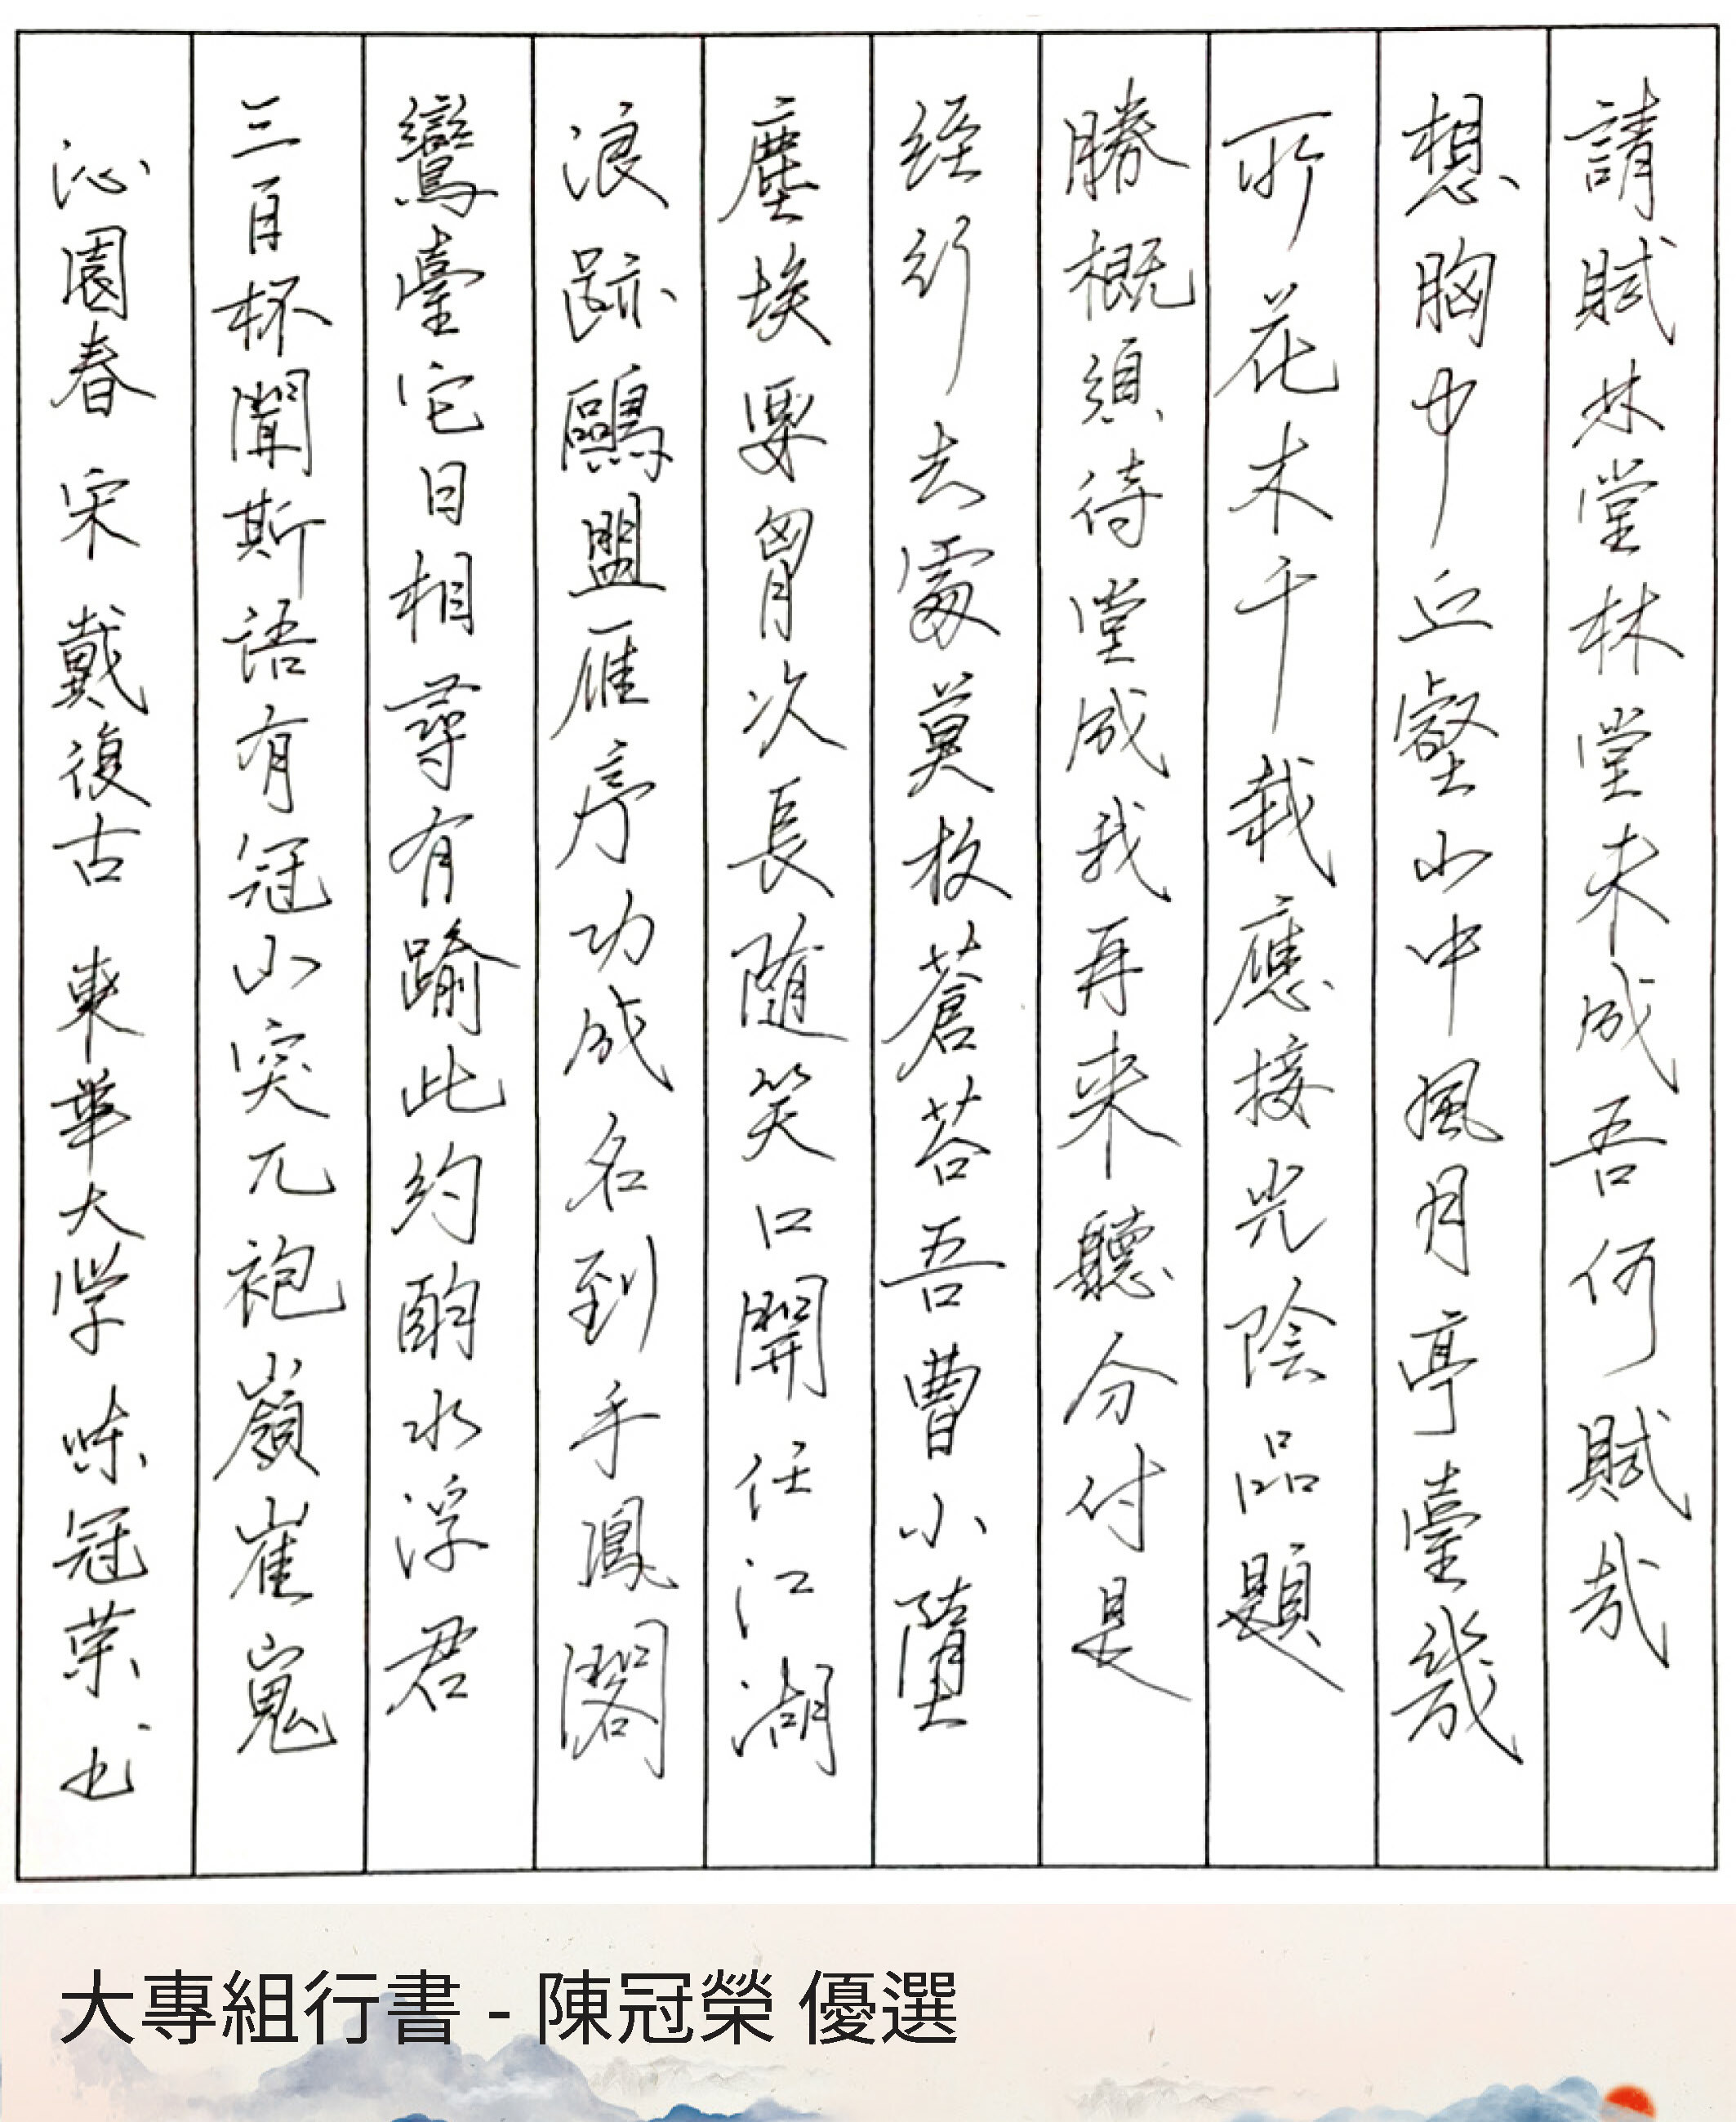 請賦林堂林堂未成吾何賦哉
想胸中丘壑山中風月亭臺幾
所花木千栽應接光陰品題
勝概須待堂成我再来聽分付是
经行去處莫教蒼苔吾曹小墮
塵埃要胷次長隨笑口開任江湖
浪跡鷗盟雁序功成名到手鳳閣
鸞臺它日相尋有踰此約酌水浮君
三百杯聞斯語有冠山突兀袍嶺崔嵬
沁園春 宋 戴復古 東華大学 陳冠荣书
大專組行書 - 陳冠榮 優選